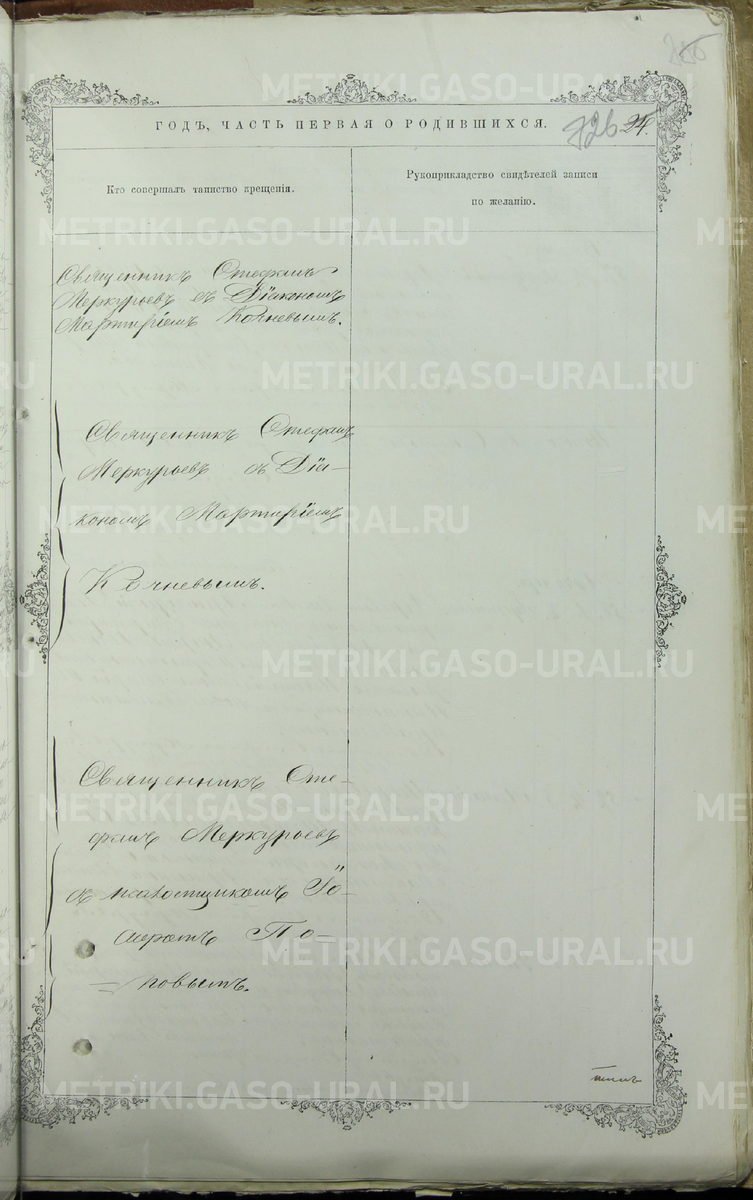 ГОДЪ, ЧАСТЬ ПЕРВАЯ О РОДИВШИХСЯ.
726
24.
Кто совершалъ таинство крещенія.
Рукоприкладство свидѣтелей записи
по желанію.
Священникъ Стефанъ
Меркурьевъ съ Діакономъ
Мартиріемъ Кочневымъ.
Священникъ Стефанъ
Меркурьевъ съ Діа-
кономъ Мартиріемъ
Кочневымъ.
Священникъ Сте-
фанъ Меркурьевъ
съ псаломщикомъ
По-
повымъ.
METRIKI.GASO-URAL.RU